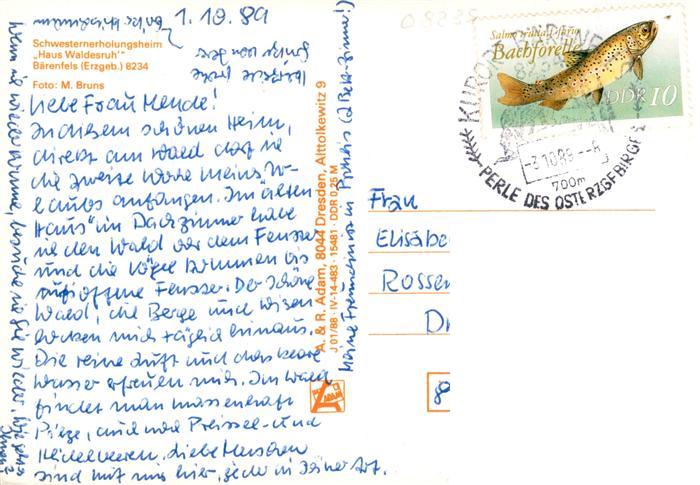 1.10.89
Schwesternerholungsheim
„Haus Waldesruh"
Bärenfels (Erzgeb.) 8234
Foto: M. Bruns
Liebe Frau Mende!
In diesem schönen Heim,
direkt am Wald darf ich
die zweite Woche meines Ur-
laubs anfangen. Im „alten
Haus" im Dachzimmer habe
ich den Wald vor dem Fenster
und die Vögel kommen bis
aufs offene Fenster. Der schöne
Wald, die Berge und Wiesen
locken mich täglich hinaus.
Die reine Luft und das klare
Wasser erfreuen mich. Im Wald
findet man massenhaft
Pilze, auch Preissel- und
Heidelbeeren. Liebe Menschen
sind mit mir hier, jeder in seiner Art.
Wenn ich wieder komme, besuche ich Sie wieder. Wie geht es
Ihnen?
Herzliche
Grüße von
A. & R. Adam, 8044 Dresden, Alttolkewitz 9
J 01/88 · IV-14-483 · 15481 · DDR 0,25 M
Meine Freundin ist in (2 Bett-Zimmer!)
ADAM
Salmo trutta f. fario
Bachforelle
DDR 10
KURORT
-3.10.89.-8
700m
PERLE DES OSTERZGEBIRGES
Frau
Elisabe
Rossen
D
8